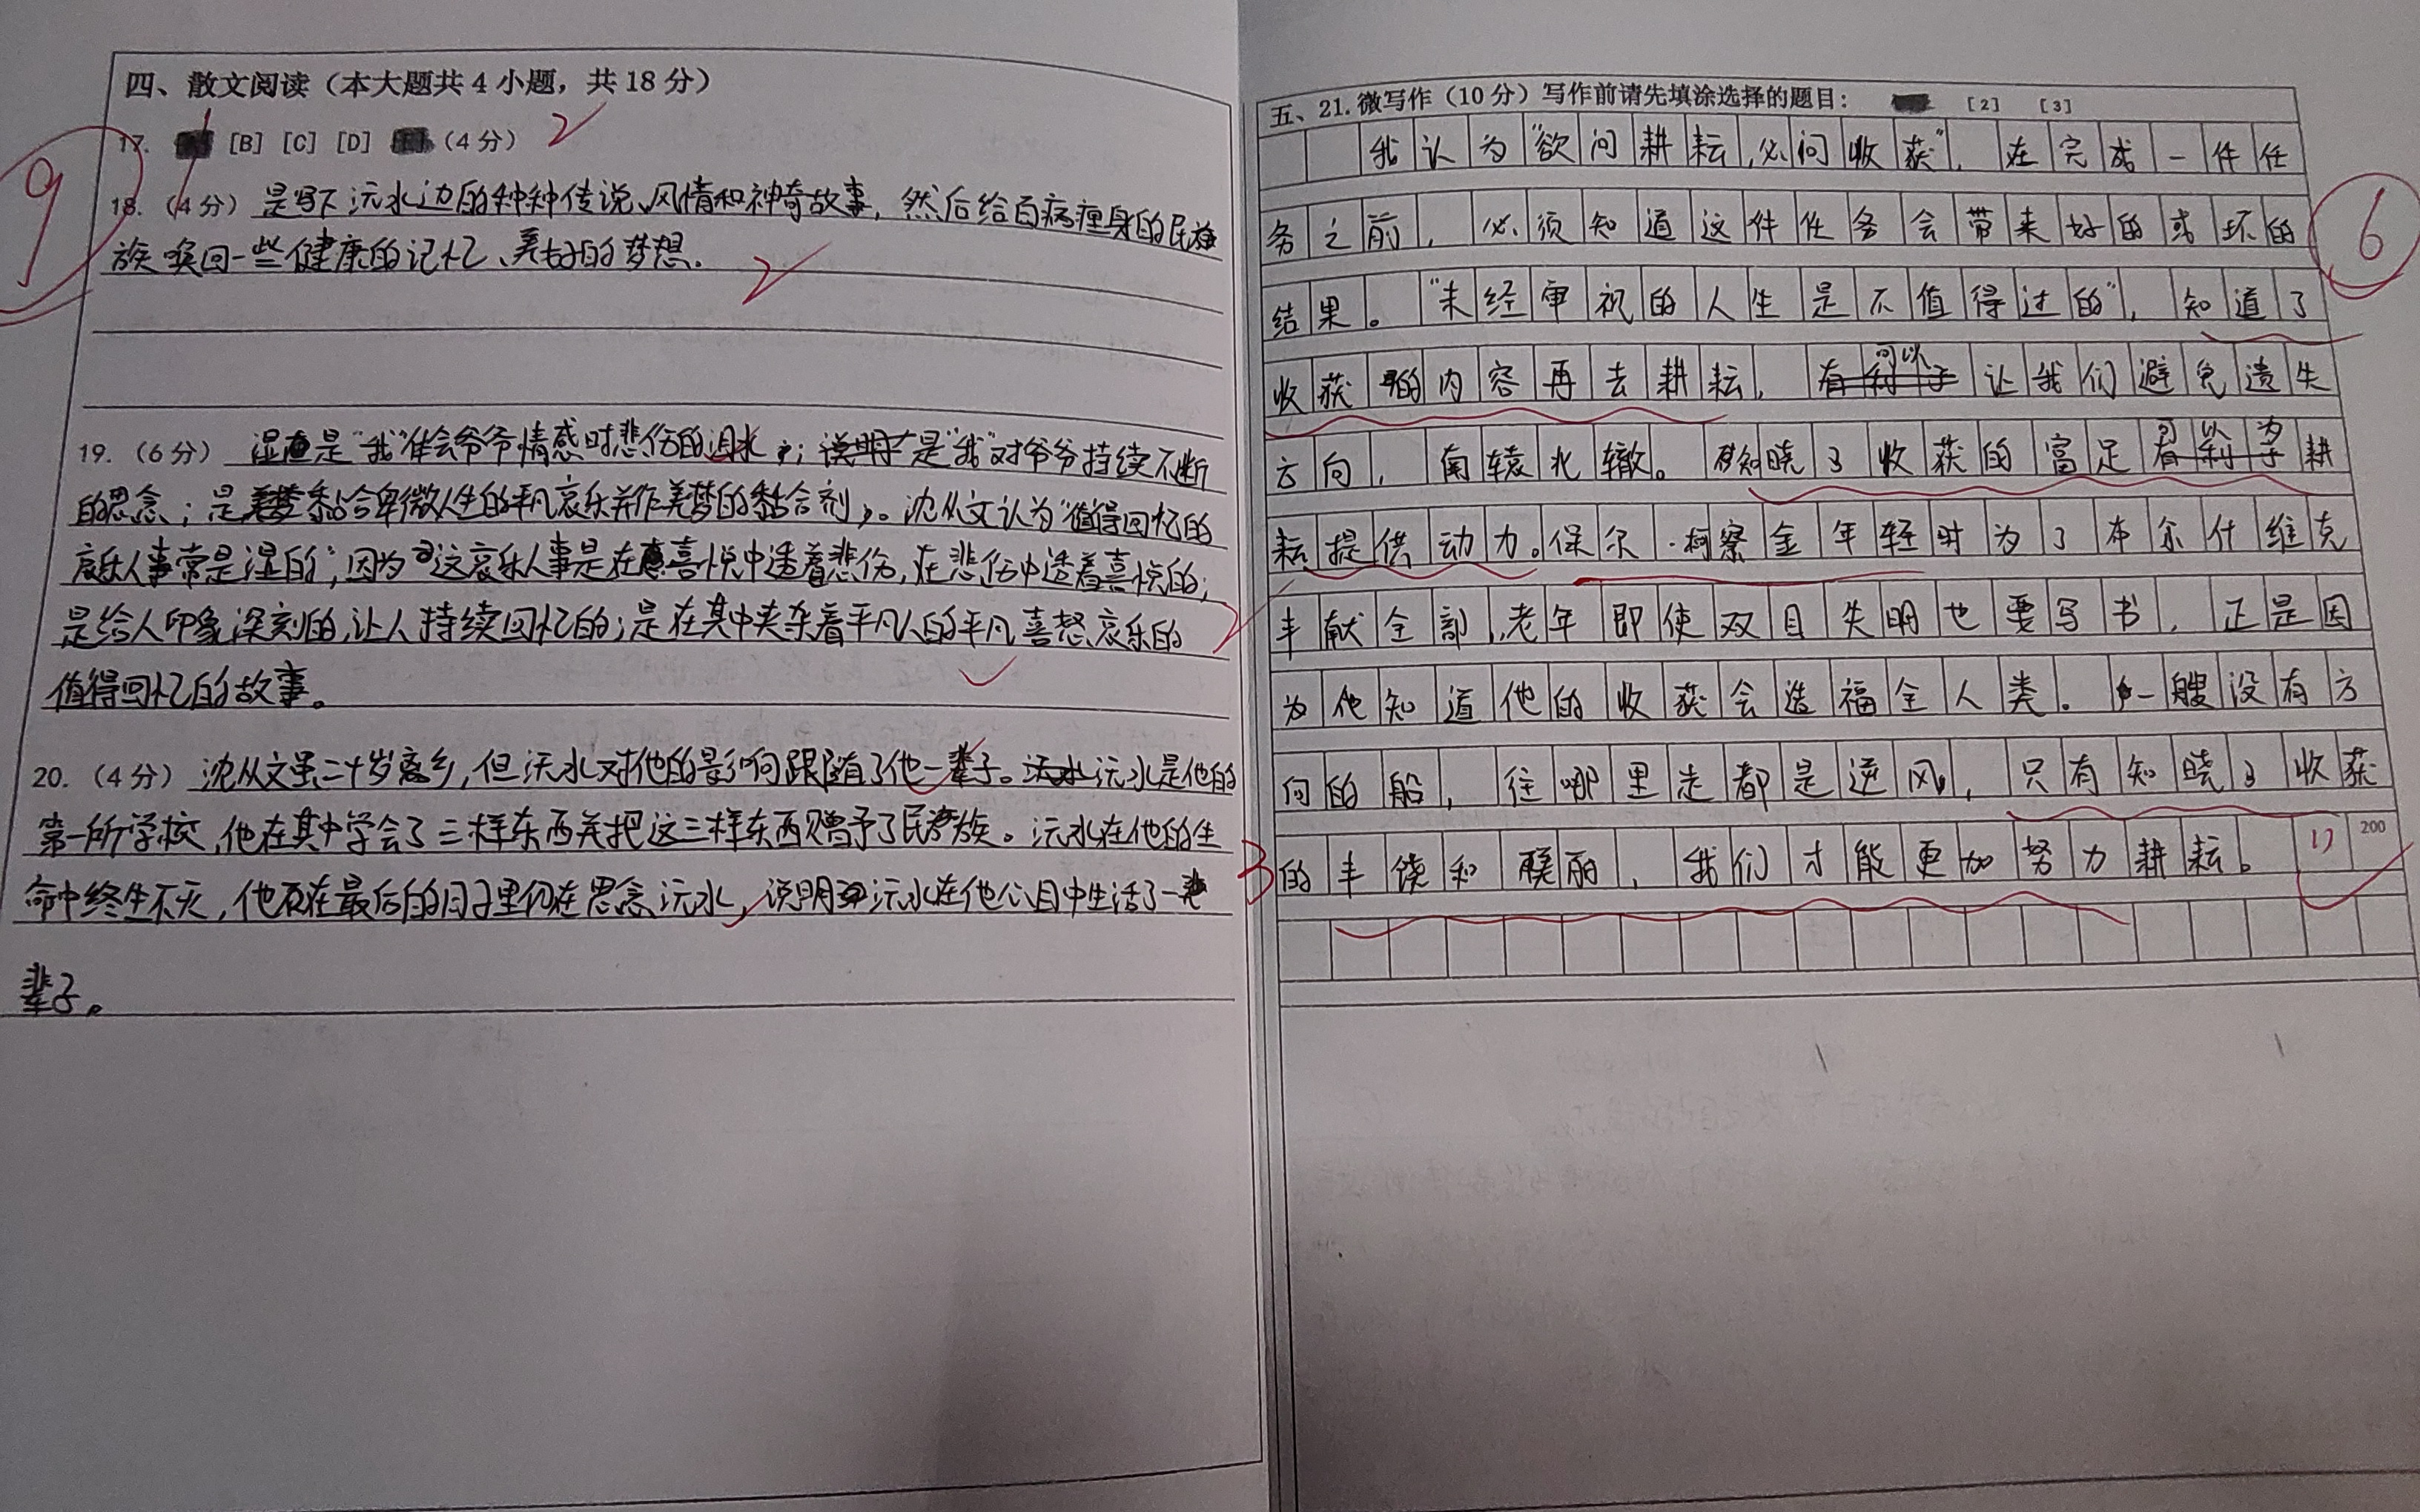 四、散文阅读（本大题共4小题，共18分）
17. [B] [C] [D] （4分） 2
9
18.（4分）是写下沅水边的种种传说、风情和神奇故事，然后给百病缠身的民族
族唤回一些健康的记忆、美好的梦想.
2
19.（6分）湿意是"我"体会爷爷情感时悲伤的泪水；是"我"对爷爷持续不断
的思念；是黏合卑微人生的平凡哀乐并作美梦的黏合剂。沈从文认为"值得回忆的
哀乐人事常是湿的"，因为这哀乐人事是在喜悦中透着悲伤，在悲伤中透着喜悦的；
是给人印象深刻的，让人持续回忆的；是在其中夹杂着平凡人的平凡喜怒哀乐的 2
值得回忆的故事。
20.（4分）沈从文虽二十岁离乡，但沅水对他的影响跟随了他一辈子。沅水是他的
第一所学校，他在其中学会了三样东西并把这三样东西赠予了民族。沅水在他的生 3
命中终生不灭，他在最后的日子里仍在思念沅水，说明沅水在他心目中生活了一
辈子。
五、21.微写作（10分）写作前请先填涂选择的题目： [2] [3]
我认为"欲问耕耘，必问收获"，在完成一件任
务之前，必须知道这件任务会带来好的或坏的
6
结果。"未经审视的人生是不值得过的"，知道了
收获的内容再去耕耘，可以让我们避免遗失
方向，南辕北辙。知晓了收获的富足可以为耕
耘提供动力。保尔·柯察金年轻时为了布尔什维克
丰献全部，老年即使双目失明也要写书，正是因
为他知道他的收获会造福全人类。一艘没有方
向的船，往哪里走都是逆风，只有知晓了收获
的丰饶和瑰丽，我们才能更加努力耕耘。 200